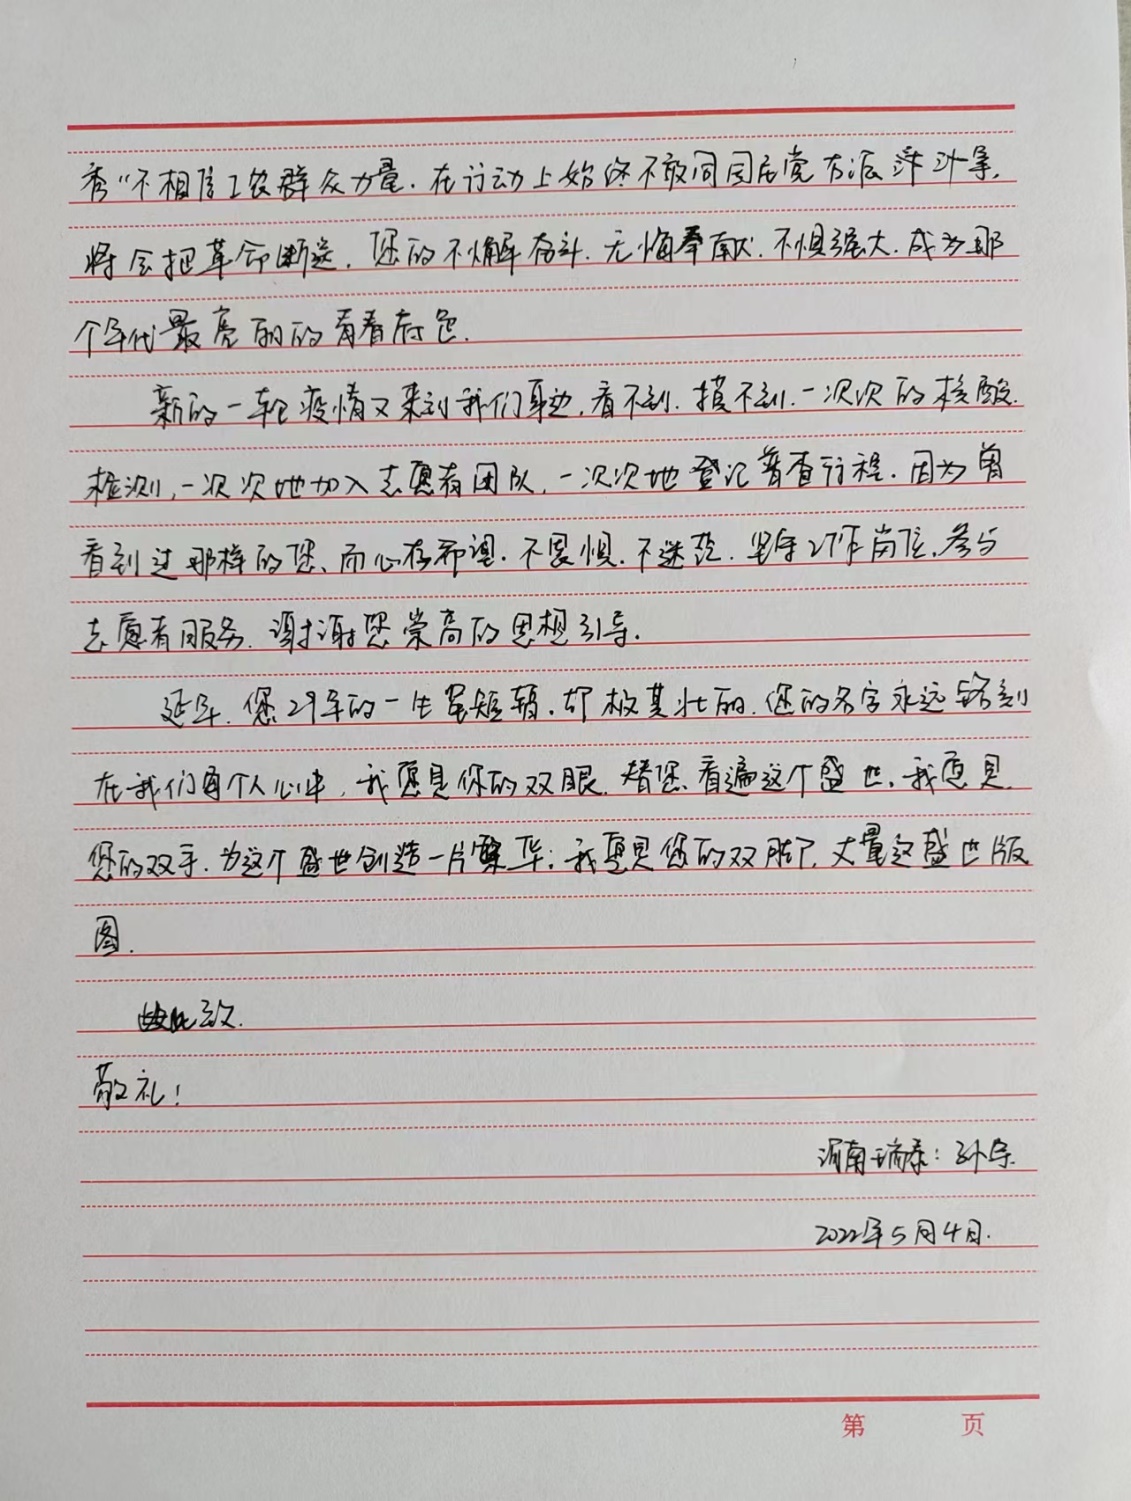 秀”不相信工农群众力量.在行动上始终不敢同国民党右派洋斗争.
将会把革命断送.您的不懈奋斗.无悔奉献.不惧强大.成为那
个年代最亮丽的青春底色.
新的一轮疫情又来到我们身边,看不到.摸不到.一次次的核酸
检测,一次次地加入志愿者团队,一次次地登记普查行程.因为曾
看到过那样的您、而心存希望.不畏惧.不迷茫.坚守工作岗位.参与
志愿者服务.谢谢您崇高的思想引导.
延年.您29年的一生虽短暂.却极其壮丽.您的名字永远铭刻
在我们每个人心中,我愿是你的双眼.替您看遍这个盛世.我愿是
您的双手.为这个盛世创造一片繁华;我愿是您的双脚.丈量这盛世版
图.
此致.
敬礼!
河南瑞泰:孙
2022年5月4日.
第 页